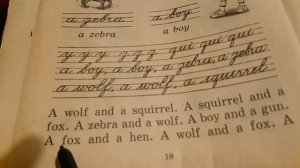 a zebra a boy
a zebra a boy
y y y y z z z qui qui qui
a boy, a boy, a zebra, a zebra
a wolf, a wolf, a squirrel
A wolf and a squirrel. A squirrel and a
fox. A zebra and a wolf. A boy and a gun.
A fox and a hen. A wolf and a fox. A
18